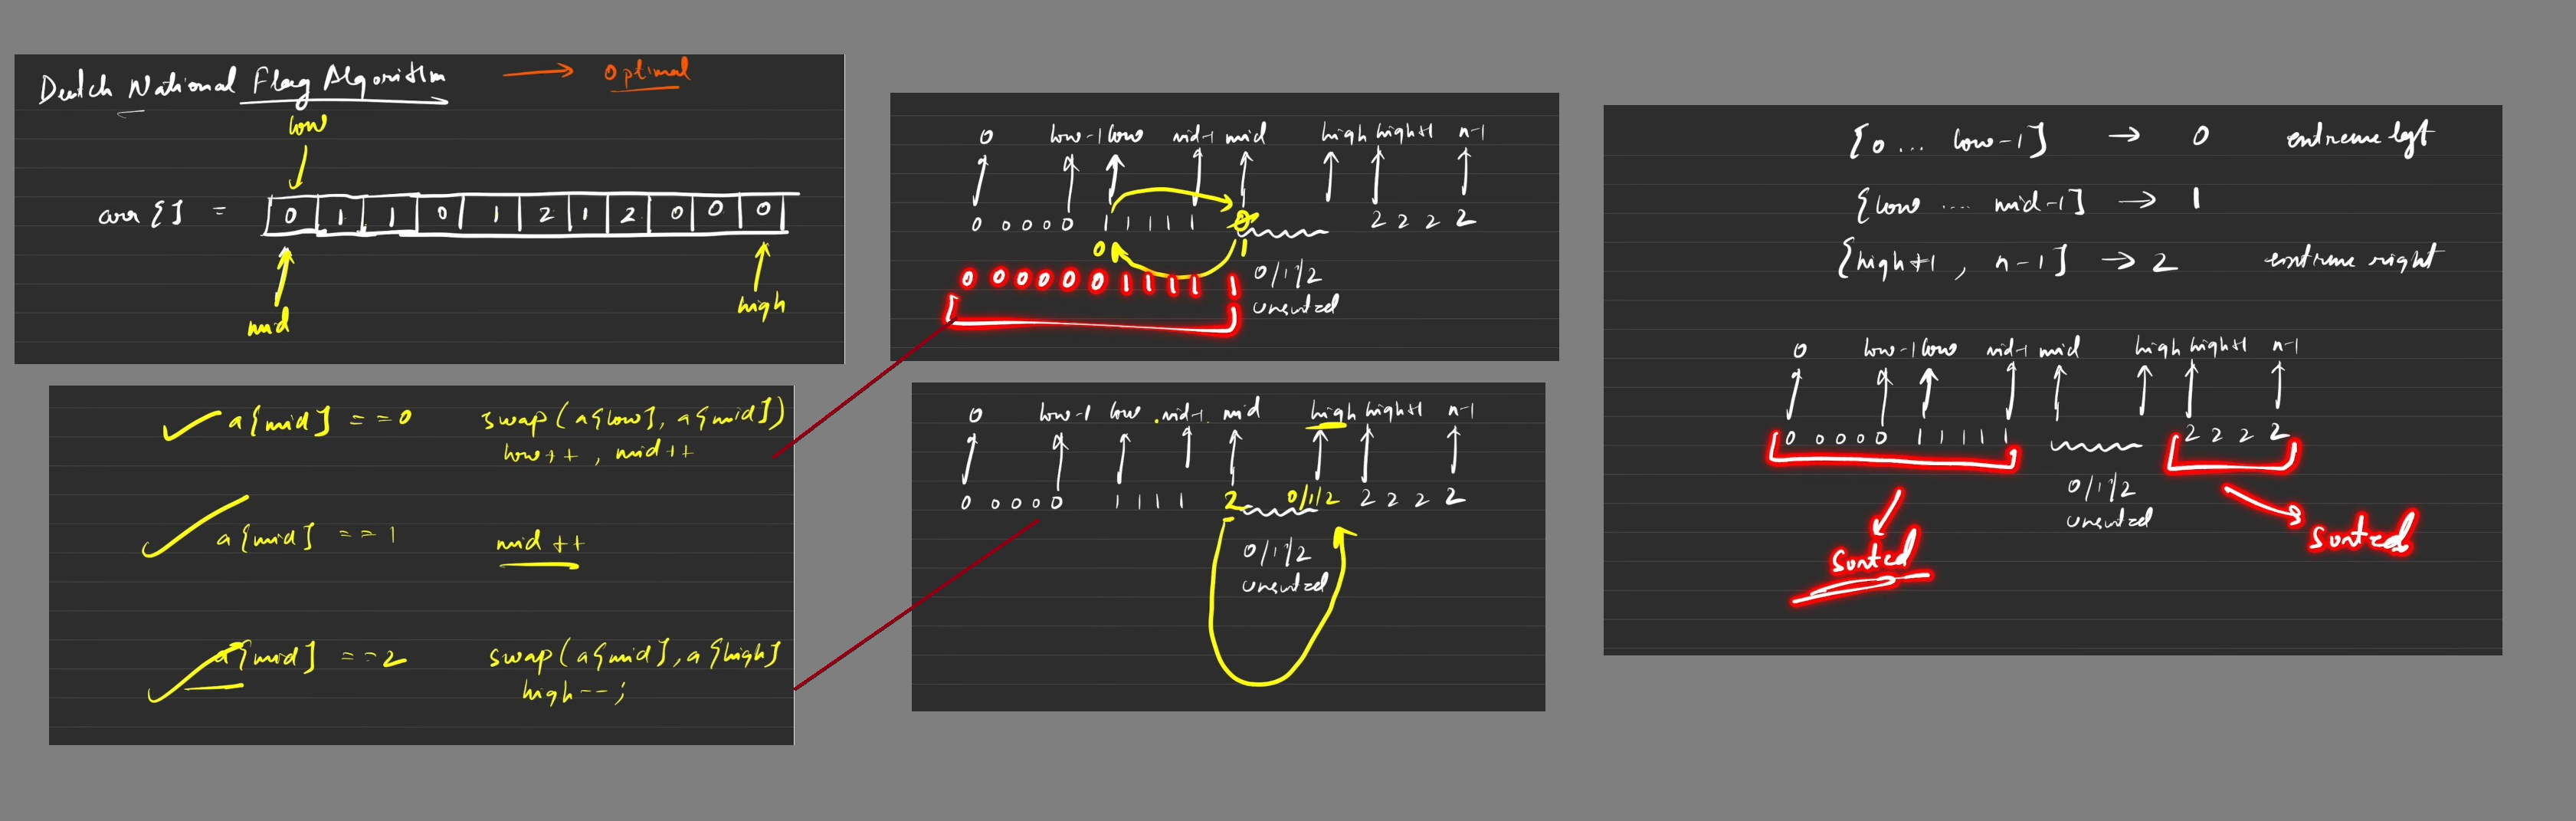 Dutch National Flag Algorithm → Optimal
low
arr [] = 0 1 1 0 1 2 1 2 0 0 0
mid high
a[mid] == 0 swap(a[low], a[mid])
low++ , mid++
a[mid] == 1 mid++
a[mid] == 2 swap(a[mid], a[high]
high--;
0 low-1 low mid-1 mid high high+1 n-1
0 0 0 0 0 1 1 1 1 1 0 2 2 2 2
0 1
0 0 0 0 0 0 1 1 1 1 1 0/1/2
unsorted
0 low-1 low mid-1 mid high high+1 n-1
0 0 0 0 0 1 1 1 1 2 0/1/2 2 2 2 2
0/1/2
unsorted
[0 ... low-1] → 0 extreme left
[low .... mid-1] → 1
[high+1 , n-1] → 2 extreme right
0 low-1 low mid-1 mid high high+1 n-1
0 0 0 0 0 1 1 1 1 1 2 2 2 2
0/1/2
unsorted
Sorted
Sorted